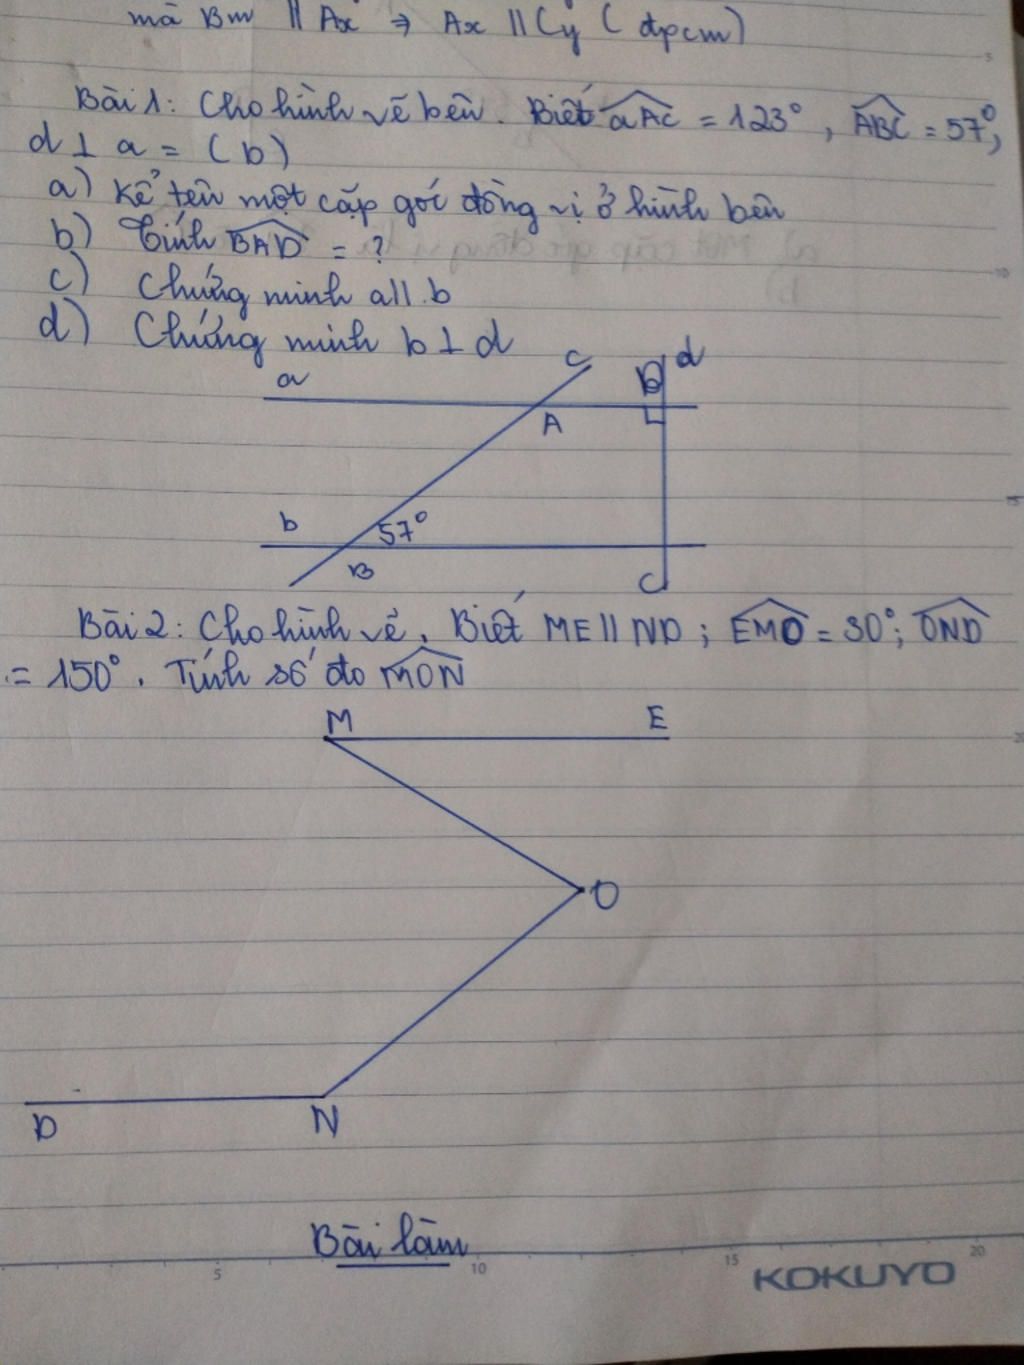 mà Bm // Ax ⇒ Ax // Cy (đpcm)
Bài 1: Cho hình vẽ bên. Biết aAC = 123°, ABC = 57°,
d ⊥ a = (b)
a) Kể tên một cặp góc đồng vị ở hình bên
b) Tính BAD = ?
c) Chứng minh a//b
d) Chứng minh b ⊥ d
a
C
D
d
A
b
57°
B
C
Bài 2: Cho hình vẽ. Biết ME // ND; EMO = 30°; OND
= 150°. Tính số đo MON
M
E
O
D
N
Bài làm
5
10
15
20
KOKUYO